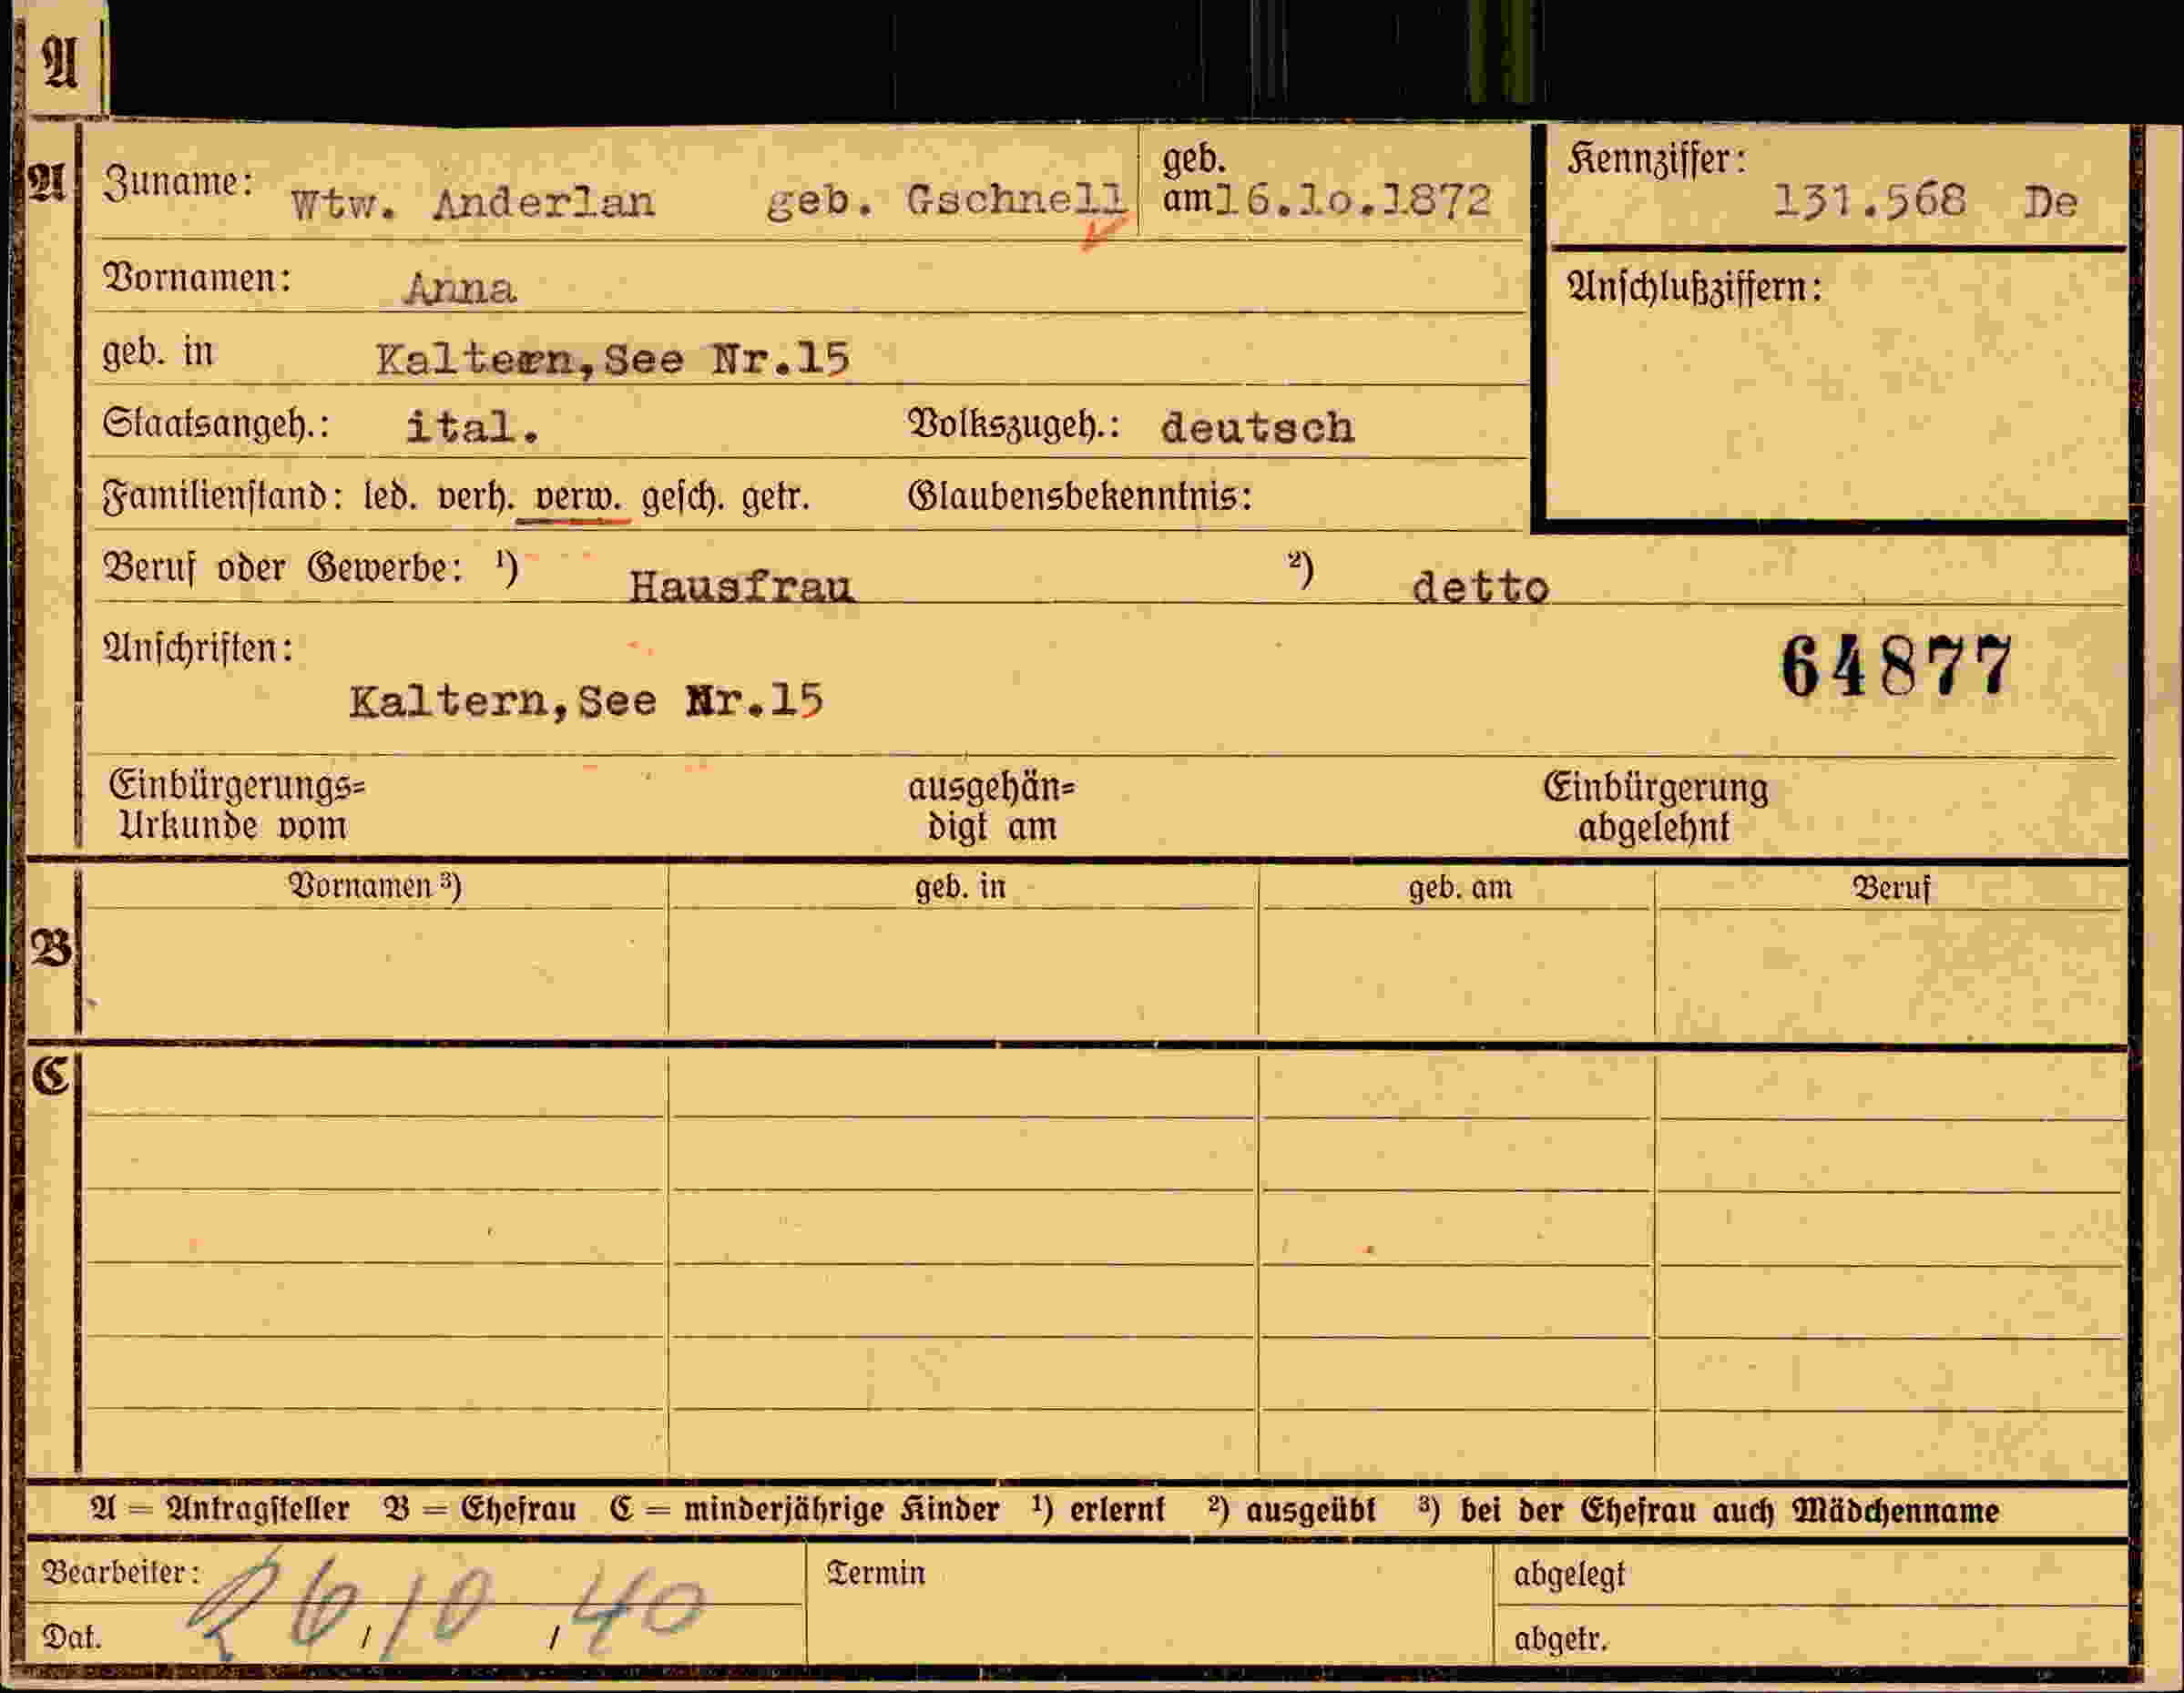 A
A
Zuname: Wtw. Anderlan geb. Gschnell geb. am 16.10.1872 Kennziffer: 131.568 De
Vornamen: Anna Anschlußziffern:
geb. in Kaltern, See Nr.15
Staatsangeh.: ital. Volkszugeh.: deutsch
Familienstand: led. verh. verw. gesch. getr. Glaubensbekenntnis:
Beruf oder Gewerbe: ¹) Hausfrau ²) detto
Anschriften: 64877
Kaltern, See Nr.15
Einbürgerungs= ausgehän= Einbürgerung
Urkunde vom digt am abgelehnt
Vornamen ³) geb. in geb. am Beruf
B
C
A = Antragsteller B = Ehefrau C = minderjährige Kinder ¹) erlernt ²) ausgeübt ³) bei der Ehefrau auch Mädchenname
Bearbeiter: Termin abgelegt
Dat. 26/10/40 abgetr.